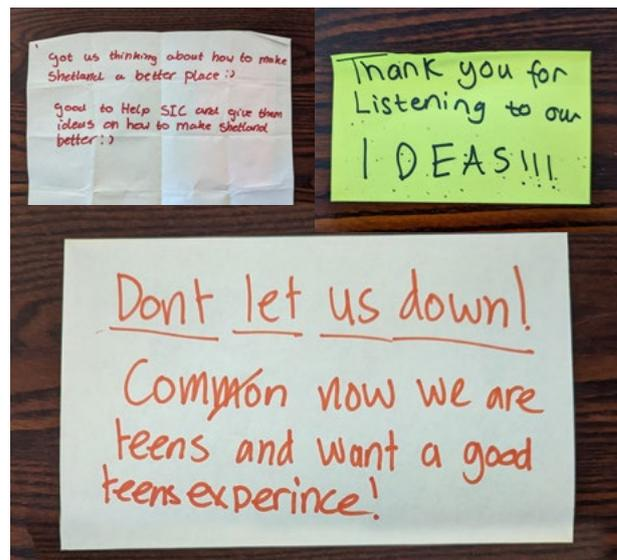 Got us thinking about how to make
Shetland a better place :)
Good to Help SIC and give them
ideas on how to make Shetland
better :)
Thank you for
Listening to our
IDEAS!!!
Dont let us down!
Common now we are
teens and want a good
teens experince!